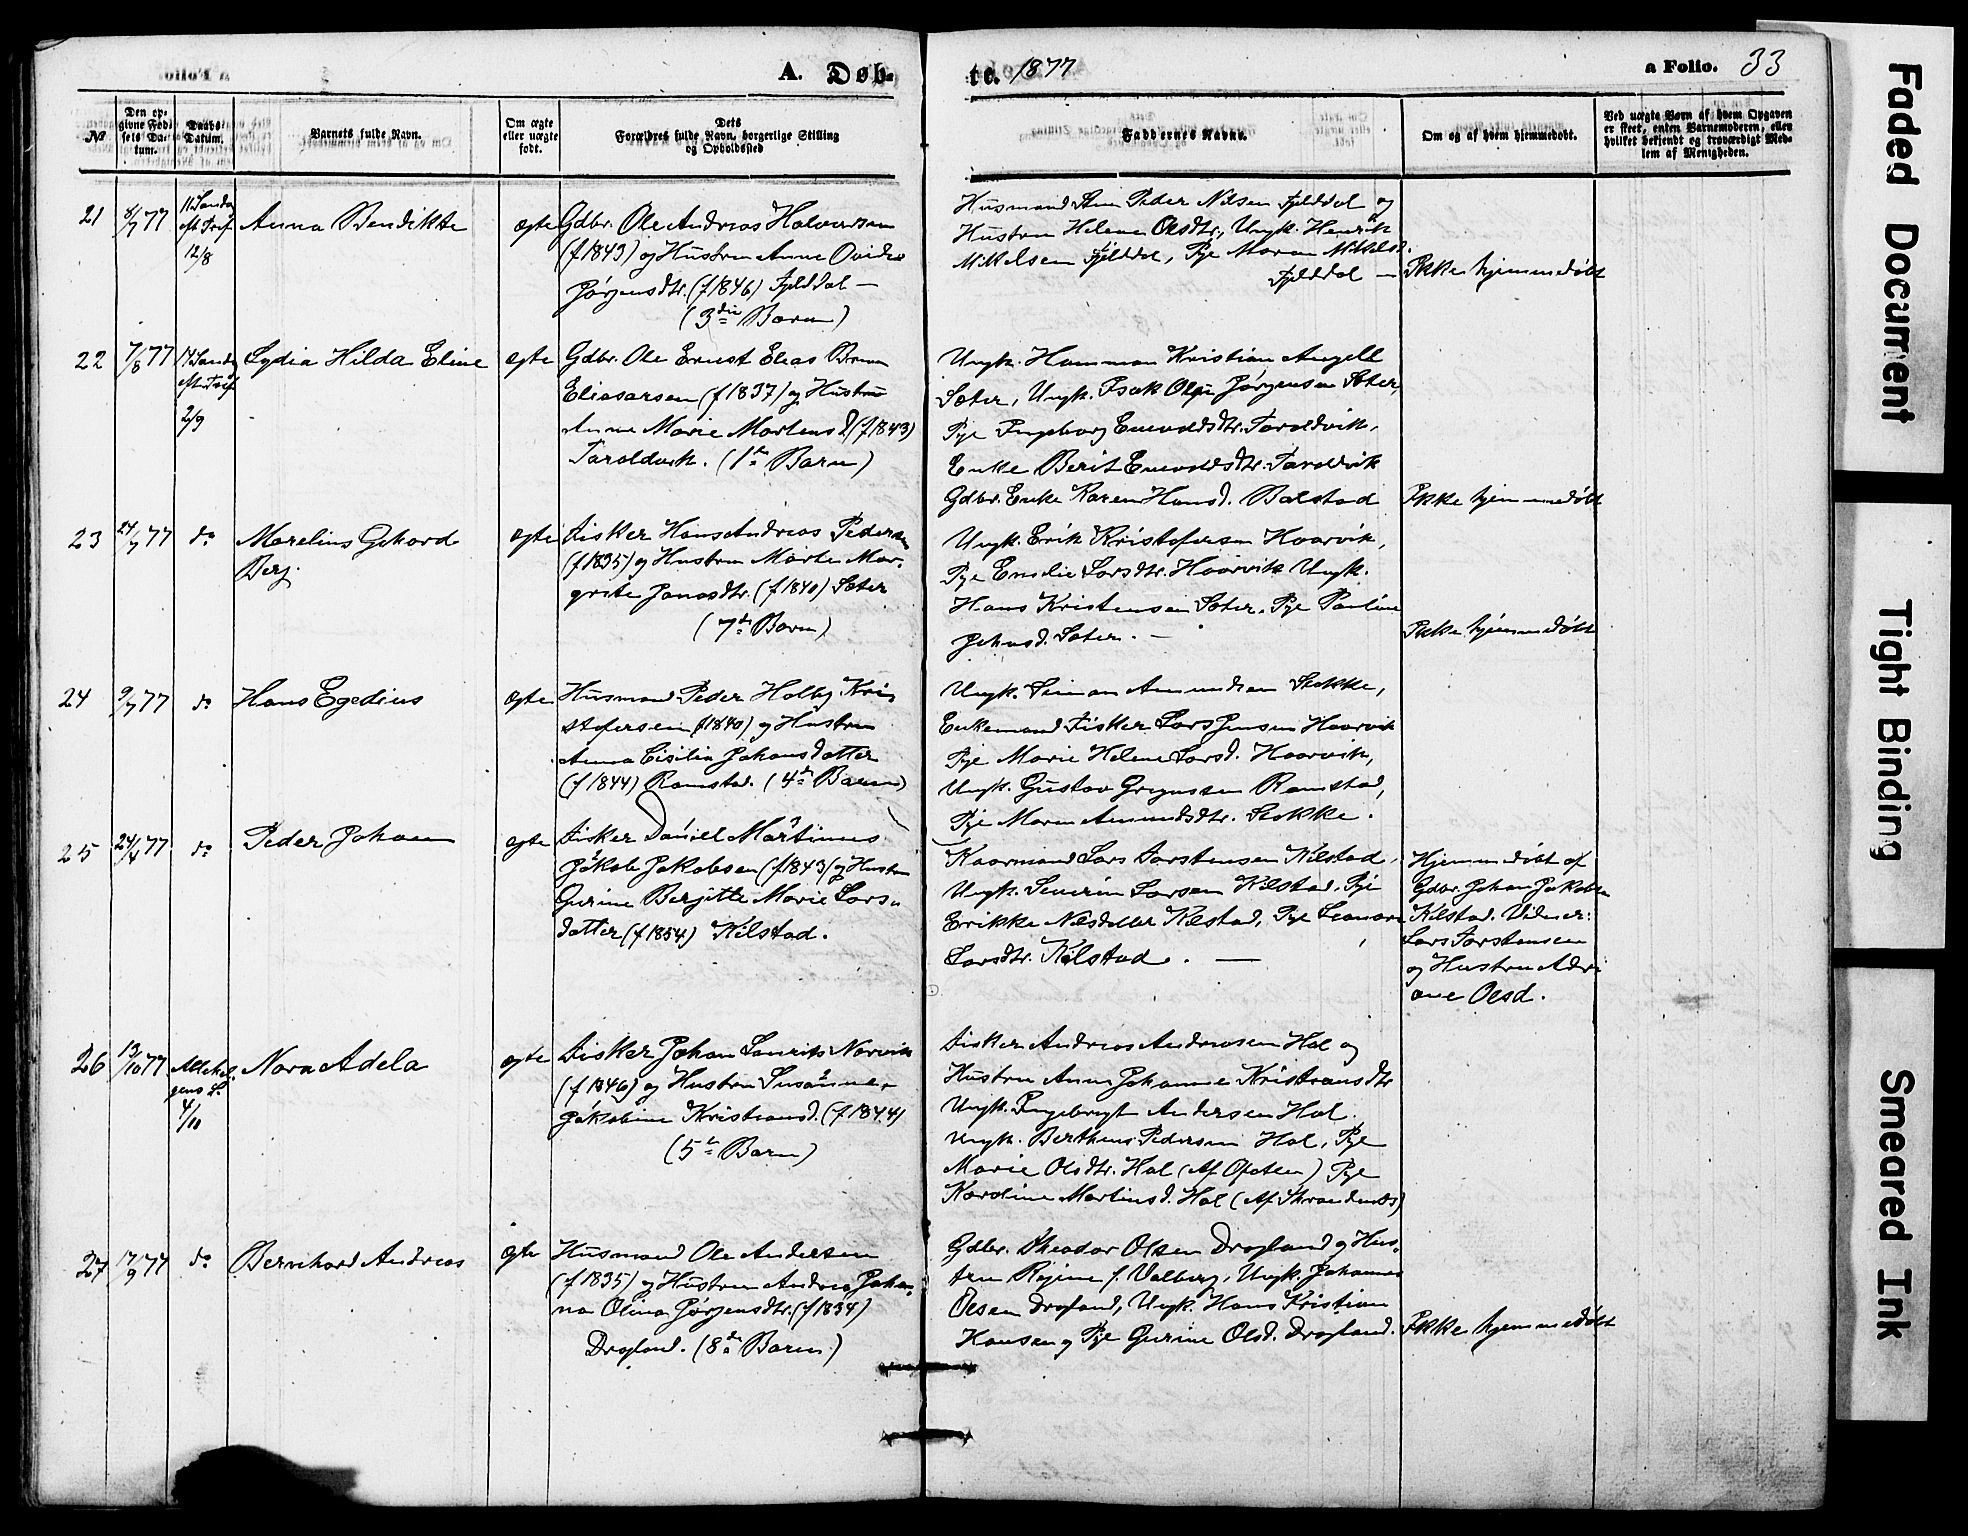 A. Døb-
te. 1877
a Folio. 33
No
Den op-
givne Fød-
sels Da-
tum.
Daabs
Datum.
Barnets fulde Navn.
Om ægte
eller uægte
født.
Dets
Forældres fulde Navn, borgerlige Stilling
og Opholdssted
Faddernes Navne.
Om og af hvem hjemmedøbt.
Ved uægte Børn af hvem Opgaven
er skeet, enten Barnemoderen, eller
hvilket bekjendt og troværdigt Med-
lem af Menigheden.
21
8/7 77
11 Sönda
eft Tref.
12/8
Anna Bendikte
ægte
Gdbr. Ole Andreas Halvorsen
(f 1843) og Hustru Anne Ovidia
Jörgensdtr. (f 1846) Fjelddal —
(3die Barn)
Husmand Peder Nilsen Fjelddal og
Hustru Helene Olsdtr., Ungk. Henrik
Mikkelsen Fjelddal, Pige Maren Mikkelsd.
Fjelddal —
Ikke hjemmedöbt
22
7/8 77
14 Sönda
eft. Tref
2/9
Lydia Hilda Eline
ægte
Gdbr. Ole Ernst Elias Brun
Eliasarsen (f 1837) og Hustru
Anne Marie Martens D (f 1843)
Taraldvik. (1te Barn)
Ungk. Hammon Kristian Angell
Sæter, Ungk. Isak Olai Jörgensen Sæter,
Pije Ingeborg Enevoldsdtr. Taraldvik,
Enke Berit Enevoldsdtr. Taraldvik
Gdbr. Enke Karen Hansd. Balstad
Ikke hjemmedöbt
23
24/7 77
do
Marelius Gehard
Berj.
ægte
Fisker Hans Andreas Pedersen
(f 1835) og Hustru Marte Mar-
grete Jonasdtr. (f 1840) Sæter
(7de Barn)
Ungk. Erik Kristofersen Haarvik,
Pije Emilie Larsdtr. Haarvik Ungk.
Hans Kristensen Sæter, Pije Pauline
Johnsd. Sæter. —
Ikke hjemmedöbt
24
9/7 77
do
Hans Egedius
ægte
Husmand Peder Holby Kri-
stofersen (f 1840) og Hustru
Anna Cisilia Johansdatter
(f 1844) Ramstad. (4de Barn)
Ungk. Simon Amundsen Stokke,
Enkemand Fisker Lars Jensen Haarvik
Pije Marie Helene Larsd. Haarvik,
Ungk. Gustav Gregussen Ramstad,
Pije Maren Amundsdtr. Stokke.
25
24/4 77
do
Peder Johan
ægte
Fisker Daniel Martinus
Jakob Jakobsen (f 1843) og Hustru
Gurine Berjitte Marie Lars-
datter (f 1854) Kilstad.
Kaarmand Lars Torstensen Kilstad,
Ungk. Severin Larsen Kilstad, Pije
Erikke Nilsdatter Kilstad, Pije Leonore
Larsdtr. Kilstad. —
Hjemmedöbt af
Gdbr. Johan Jakobsen
Kilstad. Vidner:
Lars Torstensen
og Hustru Adri
ane Olsd.
26
13/10 77
Allehel-
gens D.
4/11
Nora Adela
ægte
Fisker Johan Laurits Norvik
(f 1846) og Hustru Susanne
Jakobine Kristiansd. (f 1844)
(5te Barn)
Fisker Andreas Andreasen Hol og
Hustru Anne Johanne Kristiansdtr
Ungk. Ingebrigt Andersen Hol.
Ungk. Bertheus Pedersen Hol, Pije
Marie Olsdtr. Hol (Af Ofoten) Pije
Karoline Martinsd. Hol (Af Strandenæs)
27
17/9 77
do
Bernhard Andreas
ægte
Husmand Ole Andersen
(f 1835) og Hustru Andrea Johan-
na Olina Jörgensdtr. (f 1834)
Dragland. (8de Barn)
Gdbr. Theodor Olsen Dragland og Hus-
tru Rejine f. Valberg, Ungk. Johannes
Olsen Dragland, Ungk. Hans Kristian
Hansen og Pije Gurine Olsd. Dragland.
Ikke hjemmedöbt
Faded Document
Tight Binding
Smeared Ink